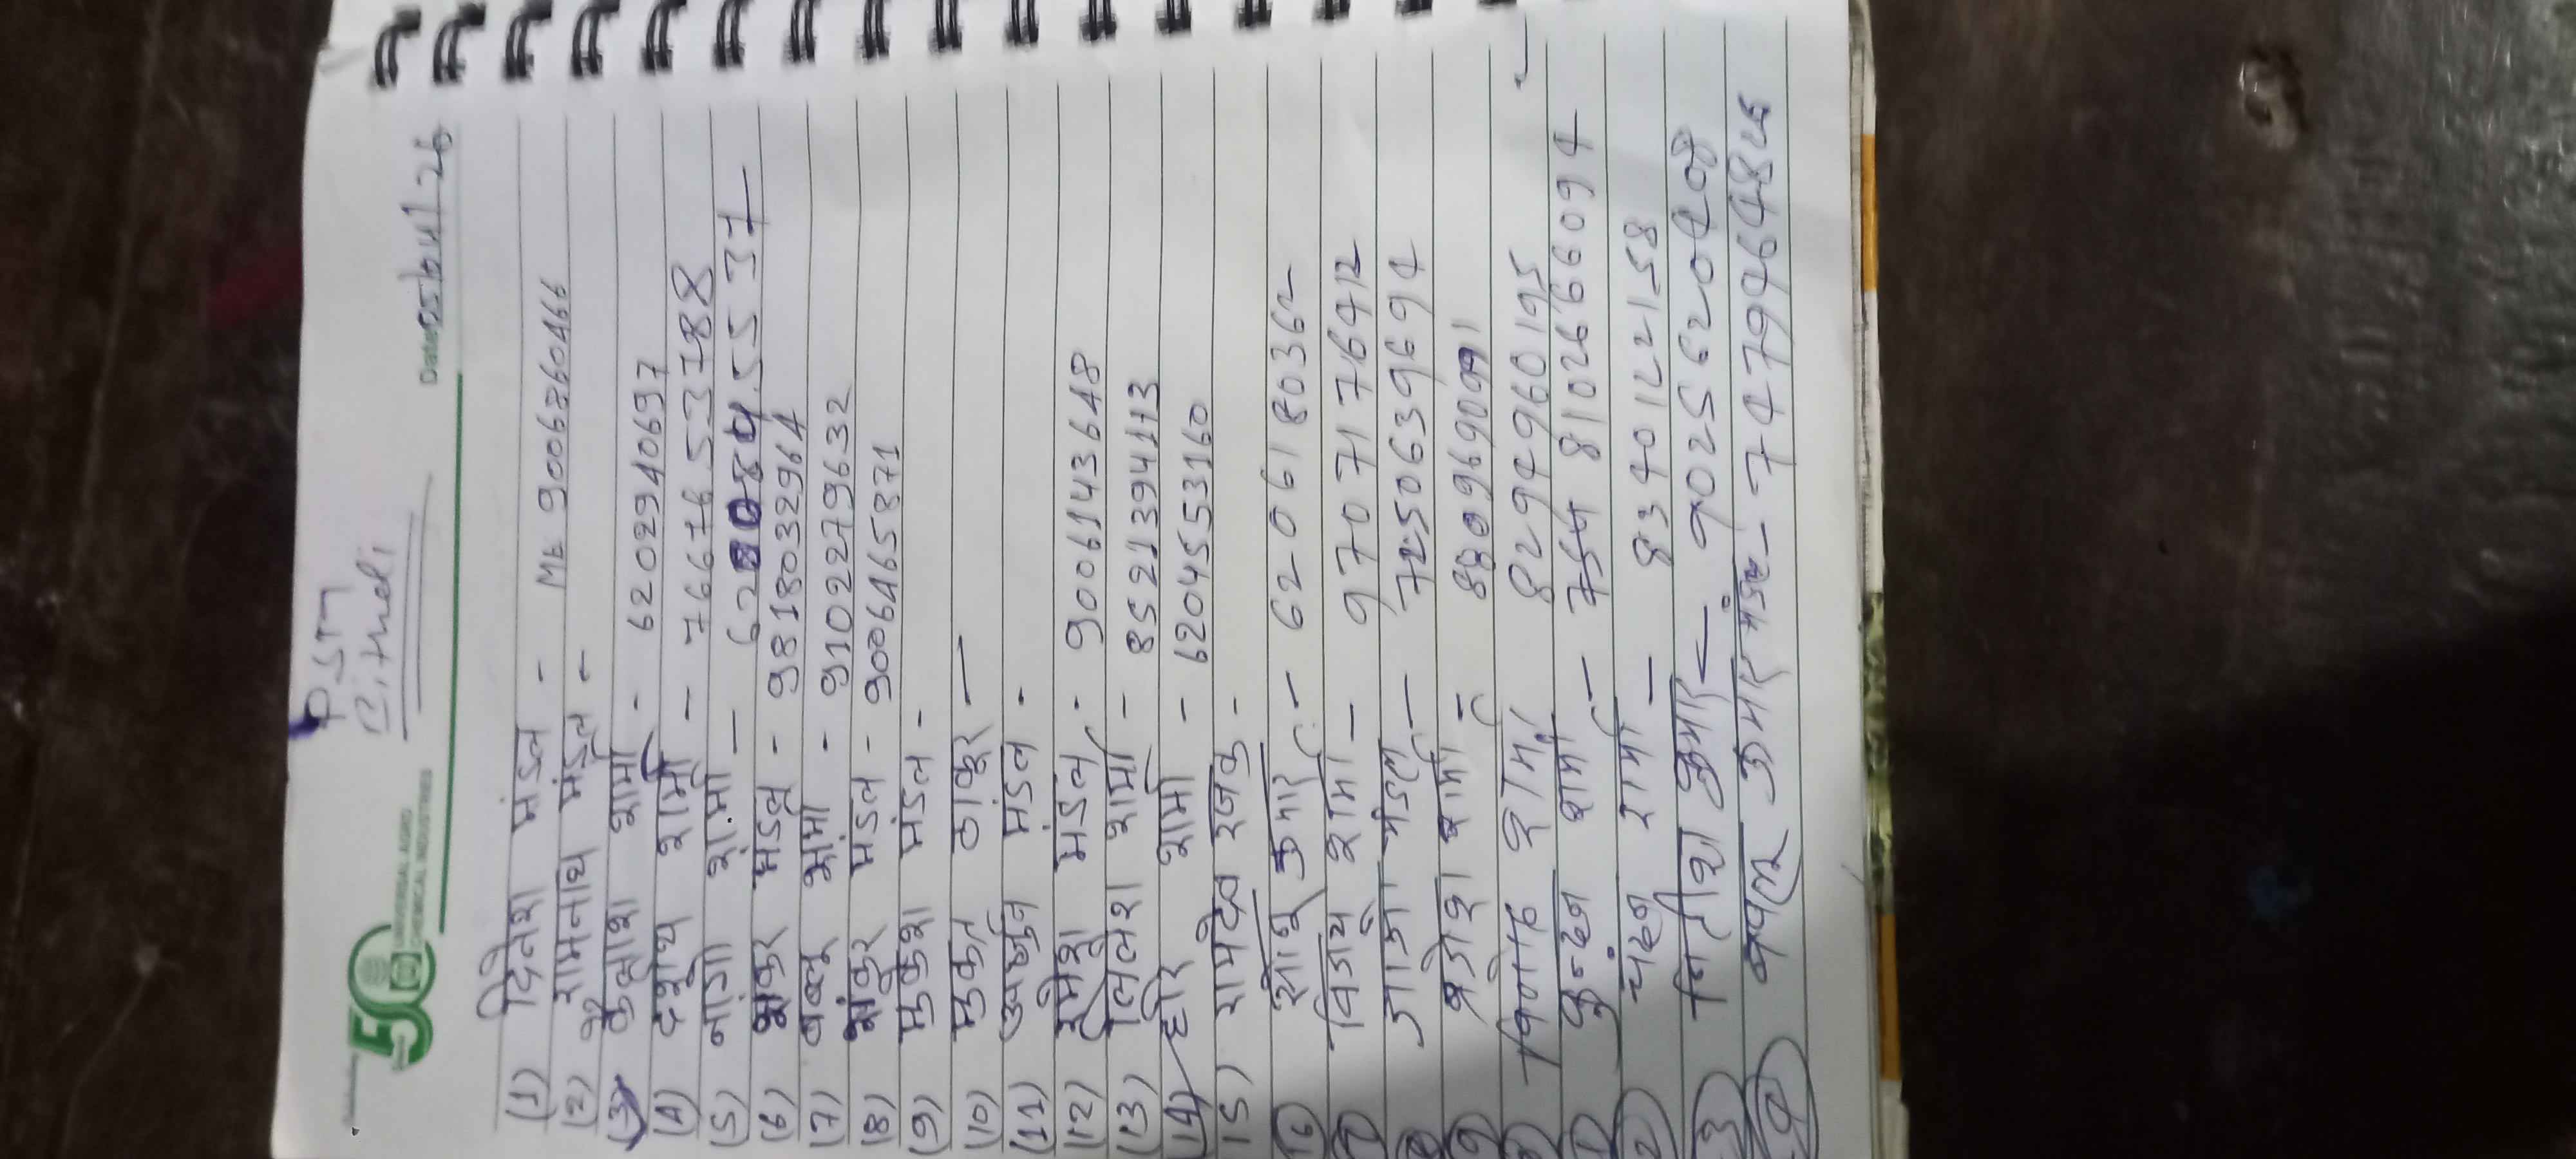 PSM
Bithali
50
UNIVERSAL AGRO
CHEMICAL INDUSTRIES
Date 05/04/26
(1) दिनेश मंडल - Mb 9006860466
(2) रामनाथ मंडल -
(3) कैलाश शर्मा - 6202940697
(4) दशरथ शर्मा - 7667653788
(5) गंगा शर्मा -
(6) शंकर मंडल - 9818032964
(7) बबलू शर्मा - 9102279632
(8) शंकर मंडल - 9006465871
(9) मुकेश मंडल -
(10) मुकेत ठाकुर -
(11) अर्जुन मंडल -
(12) उमेश मंडल - 9006143648
(13) निलेश शर्मा - 8521394173
(14) शर्मा - 6204553160
15) रामदेव रजक -
(16) कुमार - 6206180362
विजय शर्मा - 9707176412
मंडल - 7250639694
शर्मा - 8309690991
शर्मा 8294960195
कुन्दन शर्मा - 8102666094
चंदन शर्मा - 8340122158
नितीश कुमार - 9025620408
कुमार मंडल - 7479464826